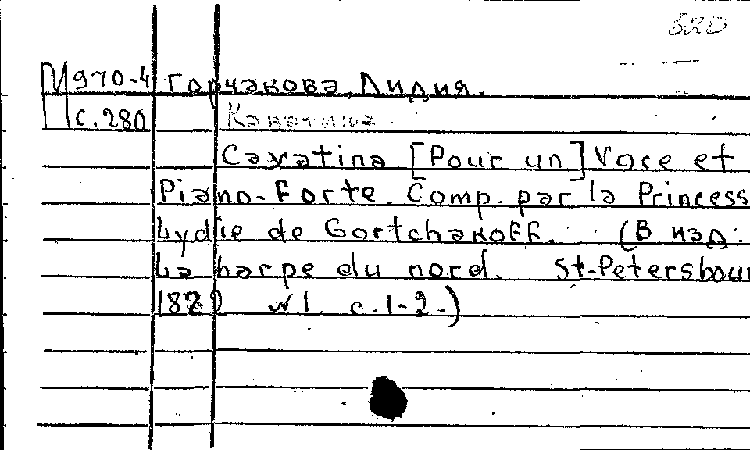 520
М970-4 Горчакова Лидия.
с. 280 Каватина
Cavatina [Pour un] Voce et
Piano-Forte. Comp. par la Princess
Lydie de Gortchakoff. (В изд:
La harpe du nord. St-Petersbour
1822 №1 с. 1-2.)